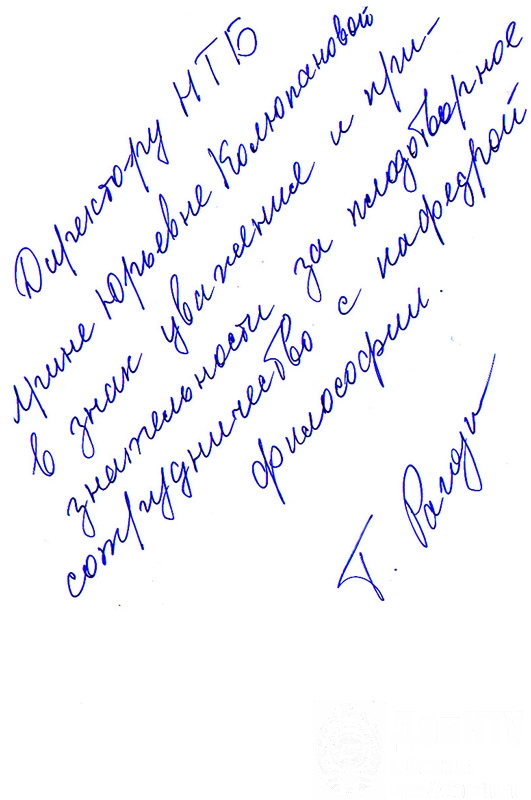 Директору НТБ
Ирине Юрьевне Колюпановой
в знак уважения и при-
знательности за плодотворное
сотрудничество с кафедрой
философии.
Г.